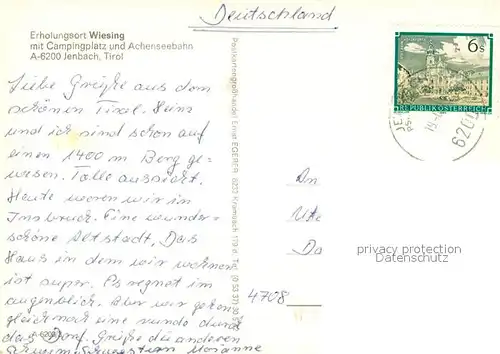 Deutschland
Erholungsort Wiesing
mit Campingplatz und Achenseebahn
A-6200 Jenbach, Tirol
Liebe Grüße aus dem
schönen Tirol. Heinz
und ich sind schon auf
einen 1400 m Berg ge-
wesen. Tolle Aussicht.
Heute waren wir in
Innsbruck. Eine wunder-
schöne Altstadt. Das
Haus in dem wir wohnen
ist super. Es regnet im
augenblick. Aber wir gehen
gleich noch eine runde durch
das Dorf. Grüße die anderen
Postkartengroßhandel Ernst EGERER, 6233 Kramsach
6 s
REPUBLIK ÖSTERREICH
6200
An
Ute
Do
4708
privacy protection
Datenschutz